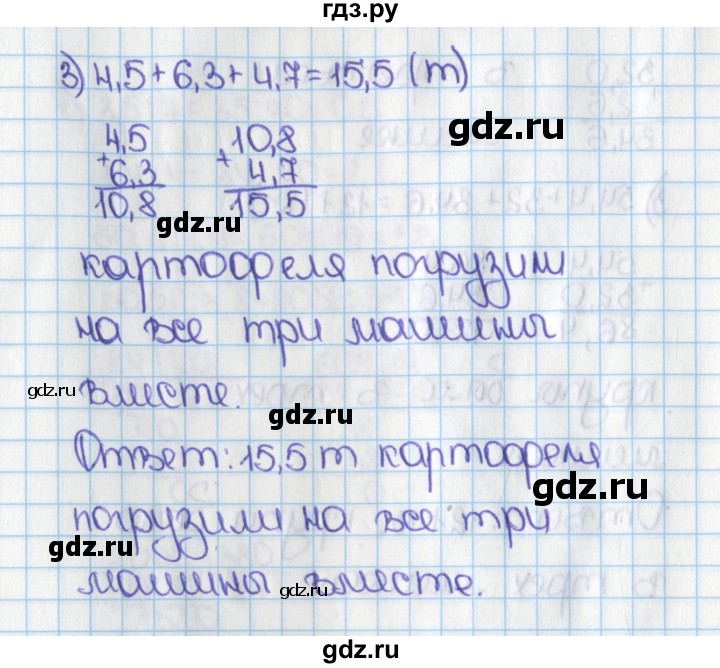 гдз.ру
3) 4,5+6,3+4,7=15,5 (т)
gdz.ru
4,5 10,8
+ +
6,3 4,7
10,8 15,5
gdz.ru
картофеля погрузили
на все три машины
gdz.ru
вместе.
gdz.ru
Ответ: 15,5 т картофеля
gdz.ru
погрузили на все три
gdz.ru
машины вместе.
gdz.ru
gdz.ru